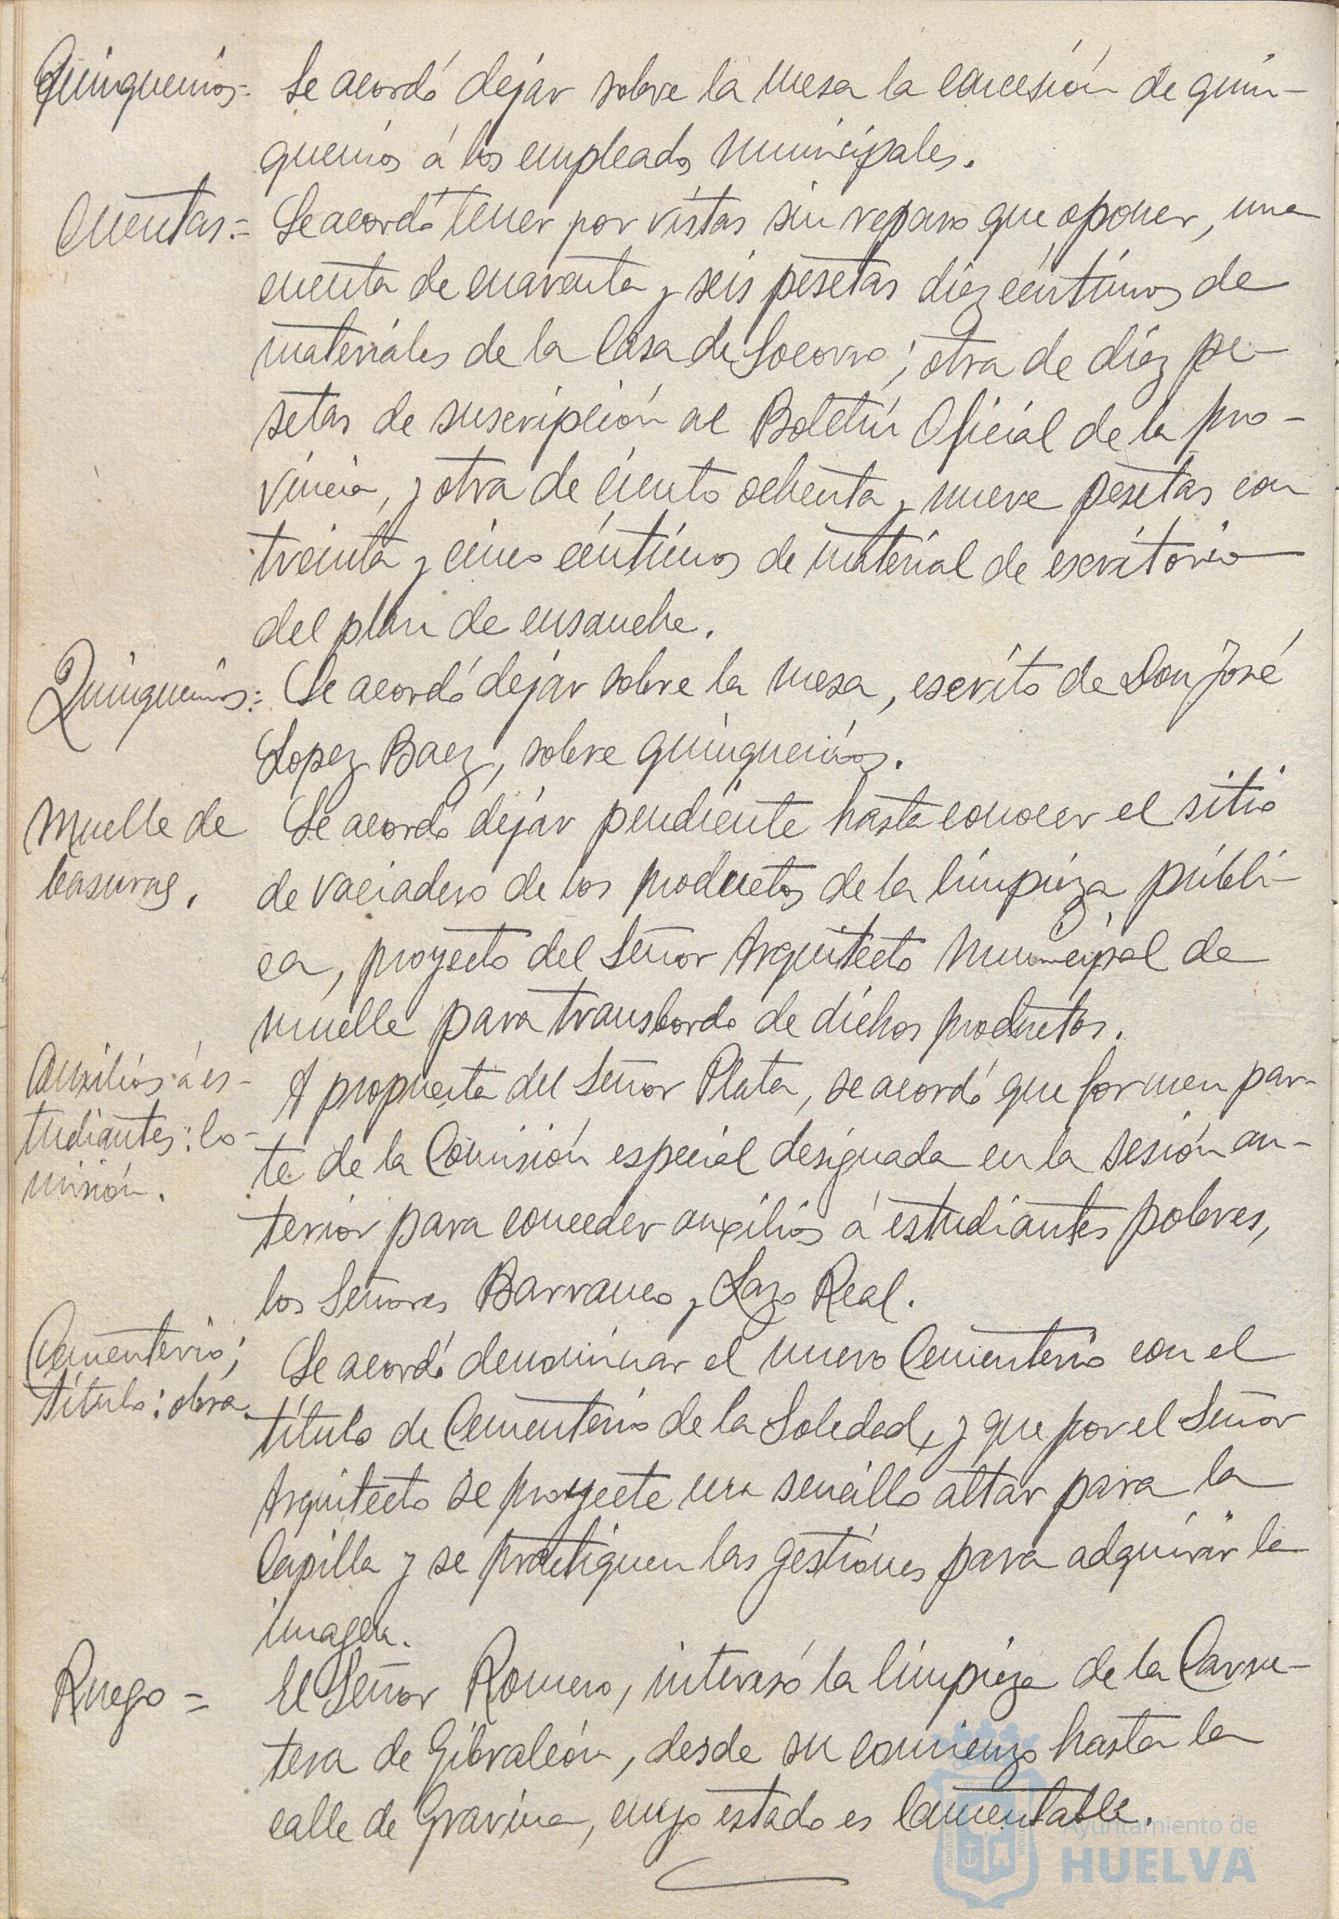 Quinquenios= Se acordó dejar sobre la mesa la concesión de quin-
quenios á los empleados municipales.
Cuentas:= Se acordó tener por vistas sin reparo que oponer, una
cuenta de cuarenta y seis pesetas diez céntimos de
materiales de la Casa de Socorro; otra de diez pe-
setas de suscripción al Boletín Oficial de la pro-
vincia, y otra de ciento ochenta y nueve pesetas con
treinta y cinco céntimos de material de escritorio
del plan de ensanche.
Quinquenios: Se acordó dejar sobre la mesa, escrito de Don José
Lopez Baez, sobre quinquenios.
Muelle de
basuras.
Se acordó dejar pendiente hasta conocer el sitio
de vaciadero de los productos de la limpieza públi-
ca, proyecto del Señor Arquitecto Municipal de
muelle para transbordo de dichos productos.
Auxilios á es-
tudiantes: Co-
misión.
A propuesta del Señor Plata, se acordó que formen par-
te de la Comisión especial designada en la sesión an-
terior para conceder auxilios á estudiantes pobres,
los Señores Barranco y Lazo Real.
Cementerio;
título: obra.
Se acordó denominar el nuevo Cementerio con el
título de Cementerio de la Soledad, y que por el Señor
Arquitecto se proyecte un sencillo altar para la
Capilla y se practiquen las gestiones para adquirir la
imagen.
Ruego = El Señor Romero, interesó la limpieza de la Carre-
tera de Gibraleón, desde su comienzo hasta la
calle de Gravina, cuyo estado es lamentable.
Ayuntamiento de
HUELVA